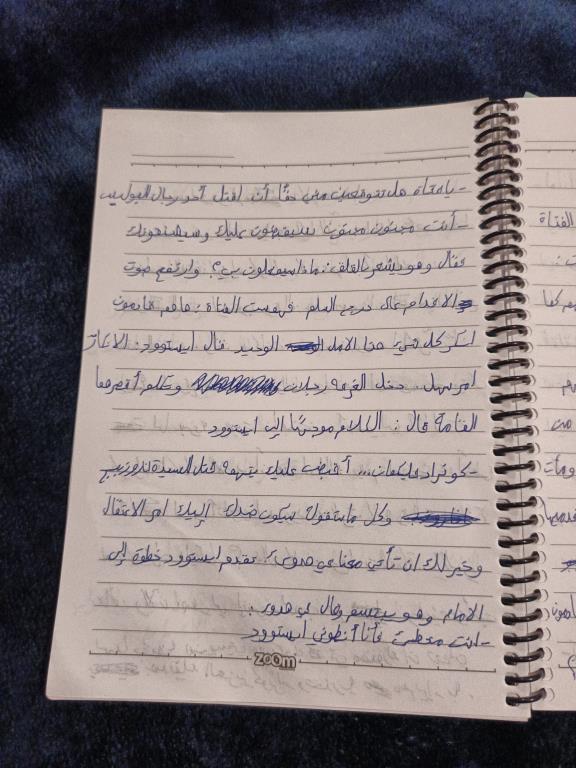 - يا فتاة هل تتوقعين مني حقًا أن اقتل أحد رجال البوليس
- أنت مجنون مجنون سيقبضون عليك وسيشنقونك
فقال وهو يشعر بالقلق: ماذا سيفعلون بي؟ وارتفع صوت
الاقدام على درج السلم فهمست الفتاة: ها هم قادمون
انكر كل شيء هذا الامل الوحيد قال ايستوود: الانكار
امر سهل. دخل الغرفة رجلان وتكلم أقصرهما
القامة قال: الكلام موجهًا الى ايستوود
- كونراد فليكمان... أقبض عليك بتهمة قتل السيدة
وكل ما ستقوله سيكون ضدك اليك امر الاعتقال
وخير لك ان تأتي معنا في هدوء. تقدم ايستوود خطوة إلى
الامام وهو يبتسم وقال في هدوء:
- انت مخطئ فأنا أنطوني ايستوود
zoom
الفتاة